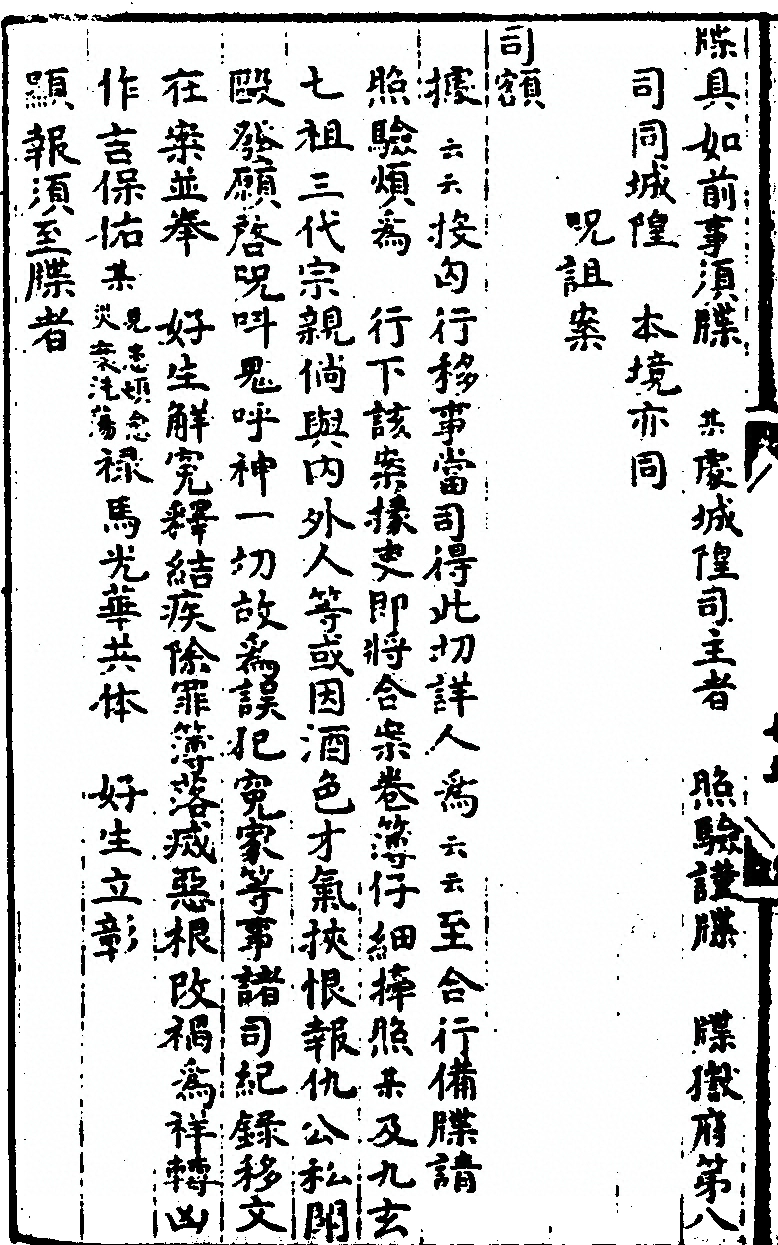 牒具如前事須牒　某處城隍司主者　照驗謹牒　牒獄府第八
司同城隍　本境亦同
呪詛案
司額
據云云按內行移事當司得此切詳人為云云至合行備牒請
照驗煩為　行下該案掾吏即將合案卷簿仔細擇照某及九玄
七祖三代宗親倘與內外人等或因酒色才氣挾恨報仇公私鬪
毆發願啓呪呌鬼呼神一切故為誤犯冤家等事諸司紀錄移文
在案並牽　好生解冤釋結疾除罪簿落滅惡根改禍為祥轉凶
作吉保佑某見患煩念災衆洗蕩祿馬光華共体　好生立彰
顯報須至牒者